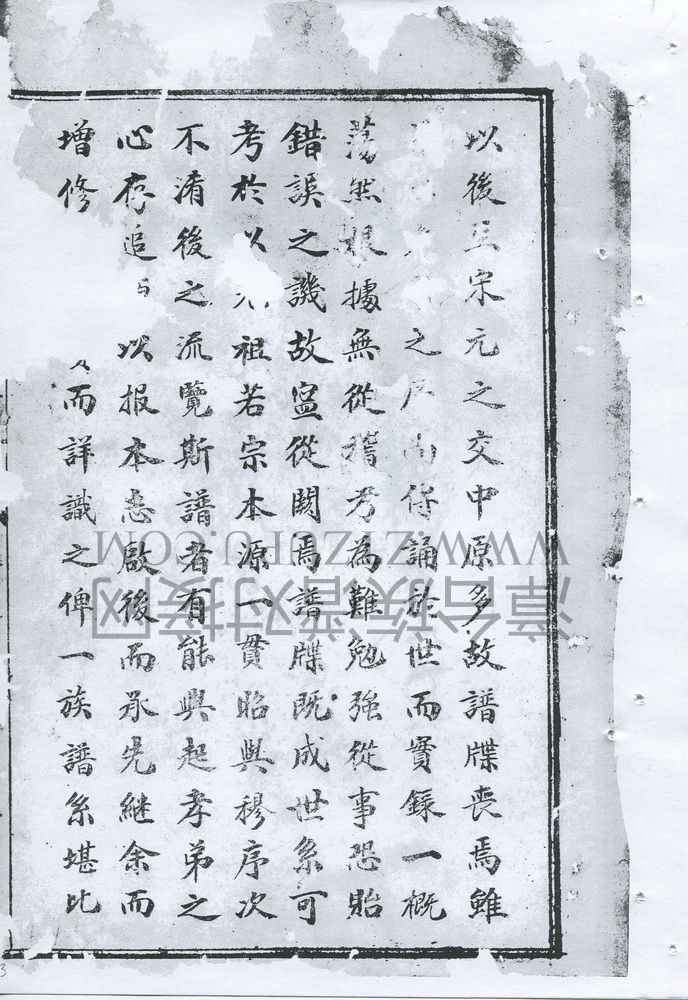 以後至宋元之交中原多故譜牒喪焉雖
之後尚傳誦於世而實錄一概
蕩然根據無從稽考為難勉強從事恐貽
錯誤之譏故寍從闕焉譜牒既成世系可
考於以 祖若宗本源一貫昭與穆序次
不淆後之流覽斯譜者有能興起孝弟之
心存追 以报本志啟後而承先繼余而
增修 而詳識之俾一族譜系堪比
WWW.ZIZUPU.COM
漳台族谱对接网
3